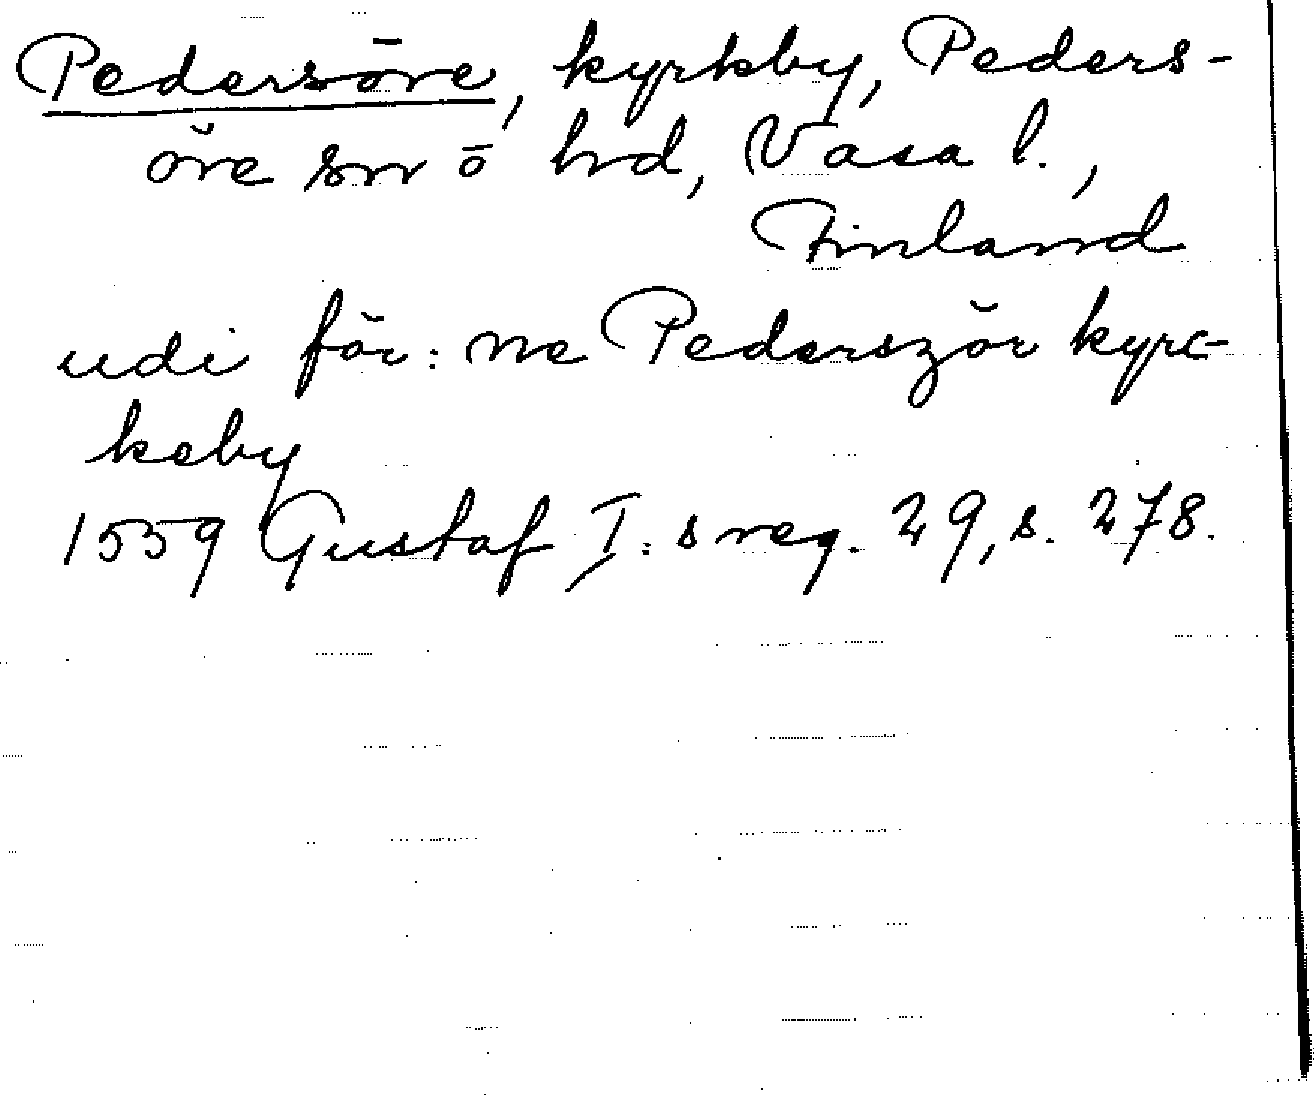 Pedersöre, kyrkby, Peders-
öre sn o hd, Vasa l.,
Finland
udi för: ne Pederször kyrc-
keby
1559 Gustaf I:s reg. 29, s. 278.